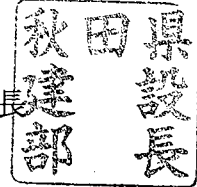 長
秋田県
建設
部長